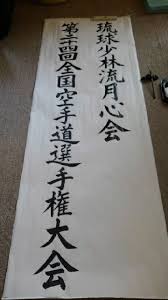 琉球少林流月心会
第二十四回全国空手道選手権大会